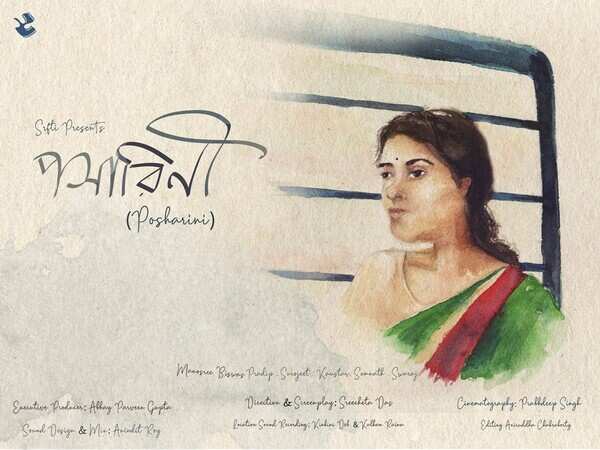 Sifti Presents
পসারিনী
(Posharini)
Manosree Biswas, Pradip, Surojeet, Kaustav, Somnath, Swaraj
Executive Producer: Abhay Parveen Gupta
Direction & Screenplay: Sreecheta Das
Cinematography: Prabhdeep Singh
Sound Design & Mix: Anindit Roy
Location Sound Recording: Kinkini Deb & Kalhan Raina
Editing Aniruddha Chakraborty